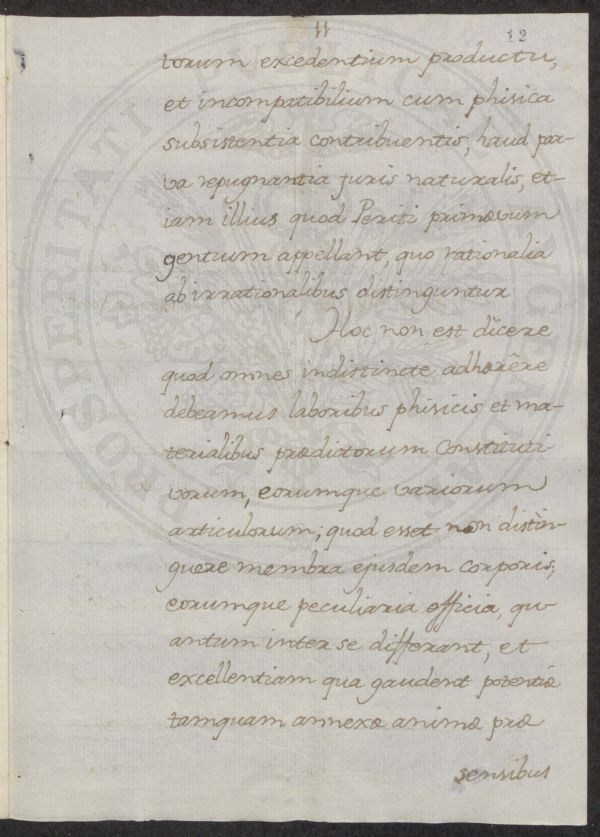 11
12
torum excedentium productu,
et incompatibilium cum phisica
subsistentia contribuentis, haud par-
va repugnantia juris naturalis, et-
iam illius quod Periti primævum
gentium appellant, quo rationalia
ab irrationalibus distinguntur
Hoc non est dicere
quod omnes indistincte adhærêre
debeamus laboribus phisicis et ma-
terialibus prædictorum Constituti
vorum, eorumque variorum
articulorum; quod esset non distin-
guere membra ejusdem corporis,
eorumque peculiaria officia, qu
antum inter se differant, et
excellentiam qua gaudent potentiæ
tamquam annexæ animæ præ
sensibus
PROSPERITATI PUBLICAE AUGENDAE